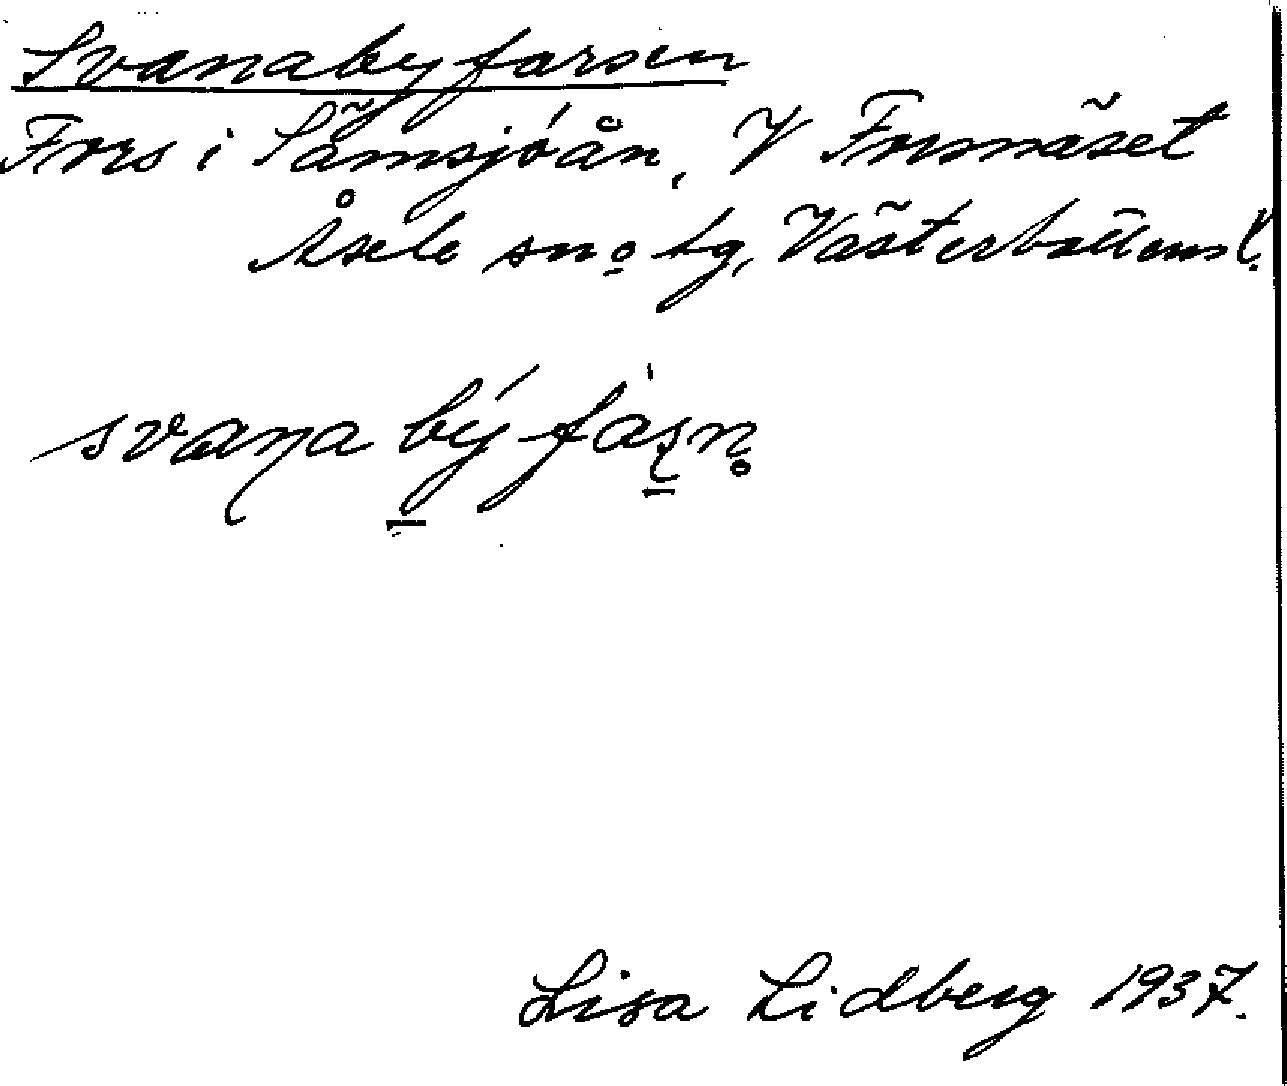 Svanabyfarsen
Fors i Sämsjöån, V Formäset
Åsele sn o tg, Västerbottens l.
svaŋa bý fàsn̥
Lisa Lidberg 1937.